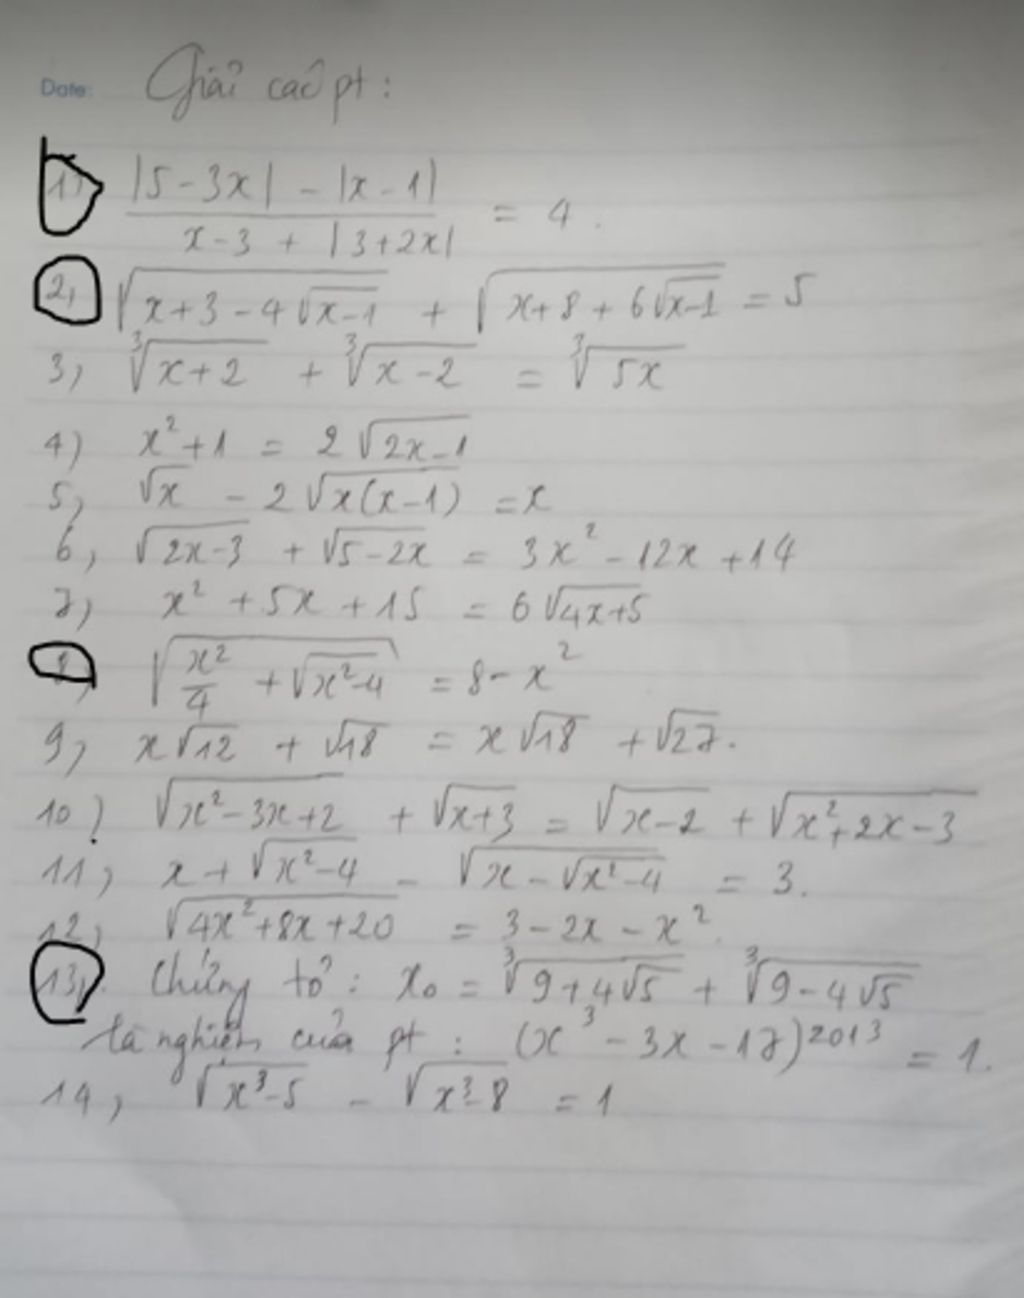 Date: Giải các pt:
1) (|5-3x| - |x-1|) / (x-3 + |3+2x|) = 4.
2, √(x+3-4√(x-1)) + √(x+8+6√(x-1)) = 5
3, ∛(x+2) + ∛(x-2) = ∛(5x)
4) x²+1 = 2√(2x-1)
5, √x - 2√(x(x-1)) = x
6, √(2x-3) + √(5-2x) = 3x² - 12x + 14
7, x² + 5x + 15 = 6√(4x+5)
8, √(x²/4 + √(x²-4)) = 8 - x²
9, x√12 + √18 = x√18 + √27.
10) √(x²-3x+2) + √(x+3) = √(x-2) + √(x²+2x-3)
11, x + √(x²-4) - √(x-√(x²-4)) = 3.
12, √(4x²+8x+20) = 3-2x-x².
13, Chứng tỏ: x₀ = ∛(9+4√5) + ∛(9-4√5)
là nghiệm của pt: (x³-3x-17)²⁰¹³ = 1.
14, √(x³-5) - √(x³-8) = 1